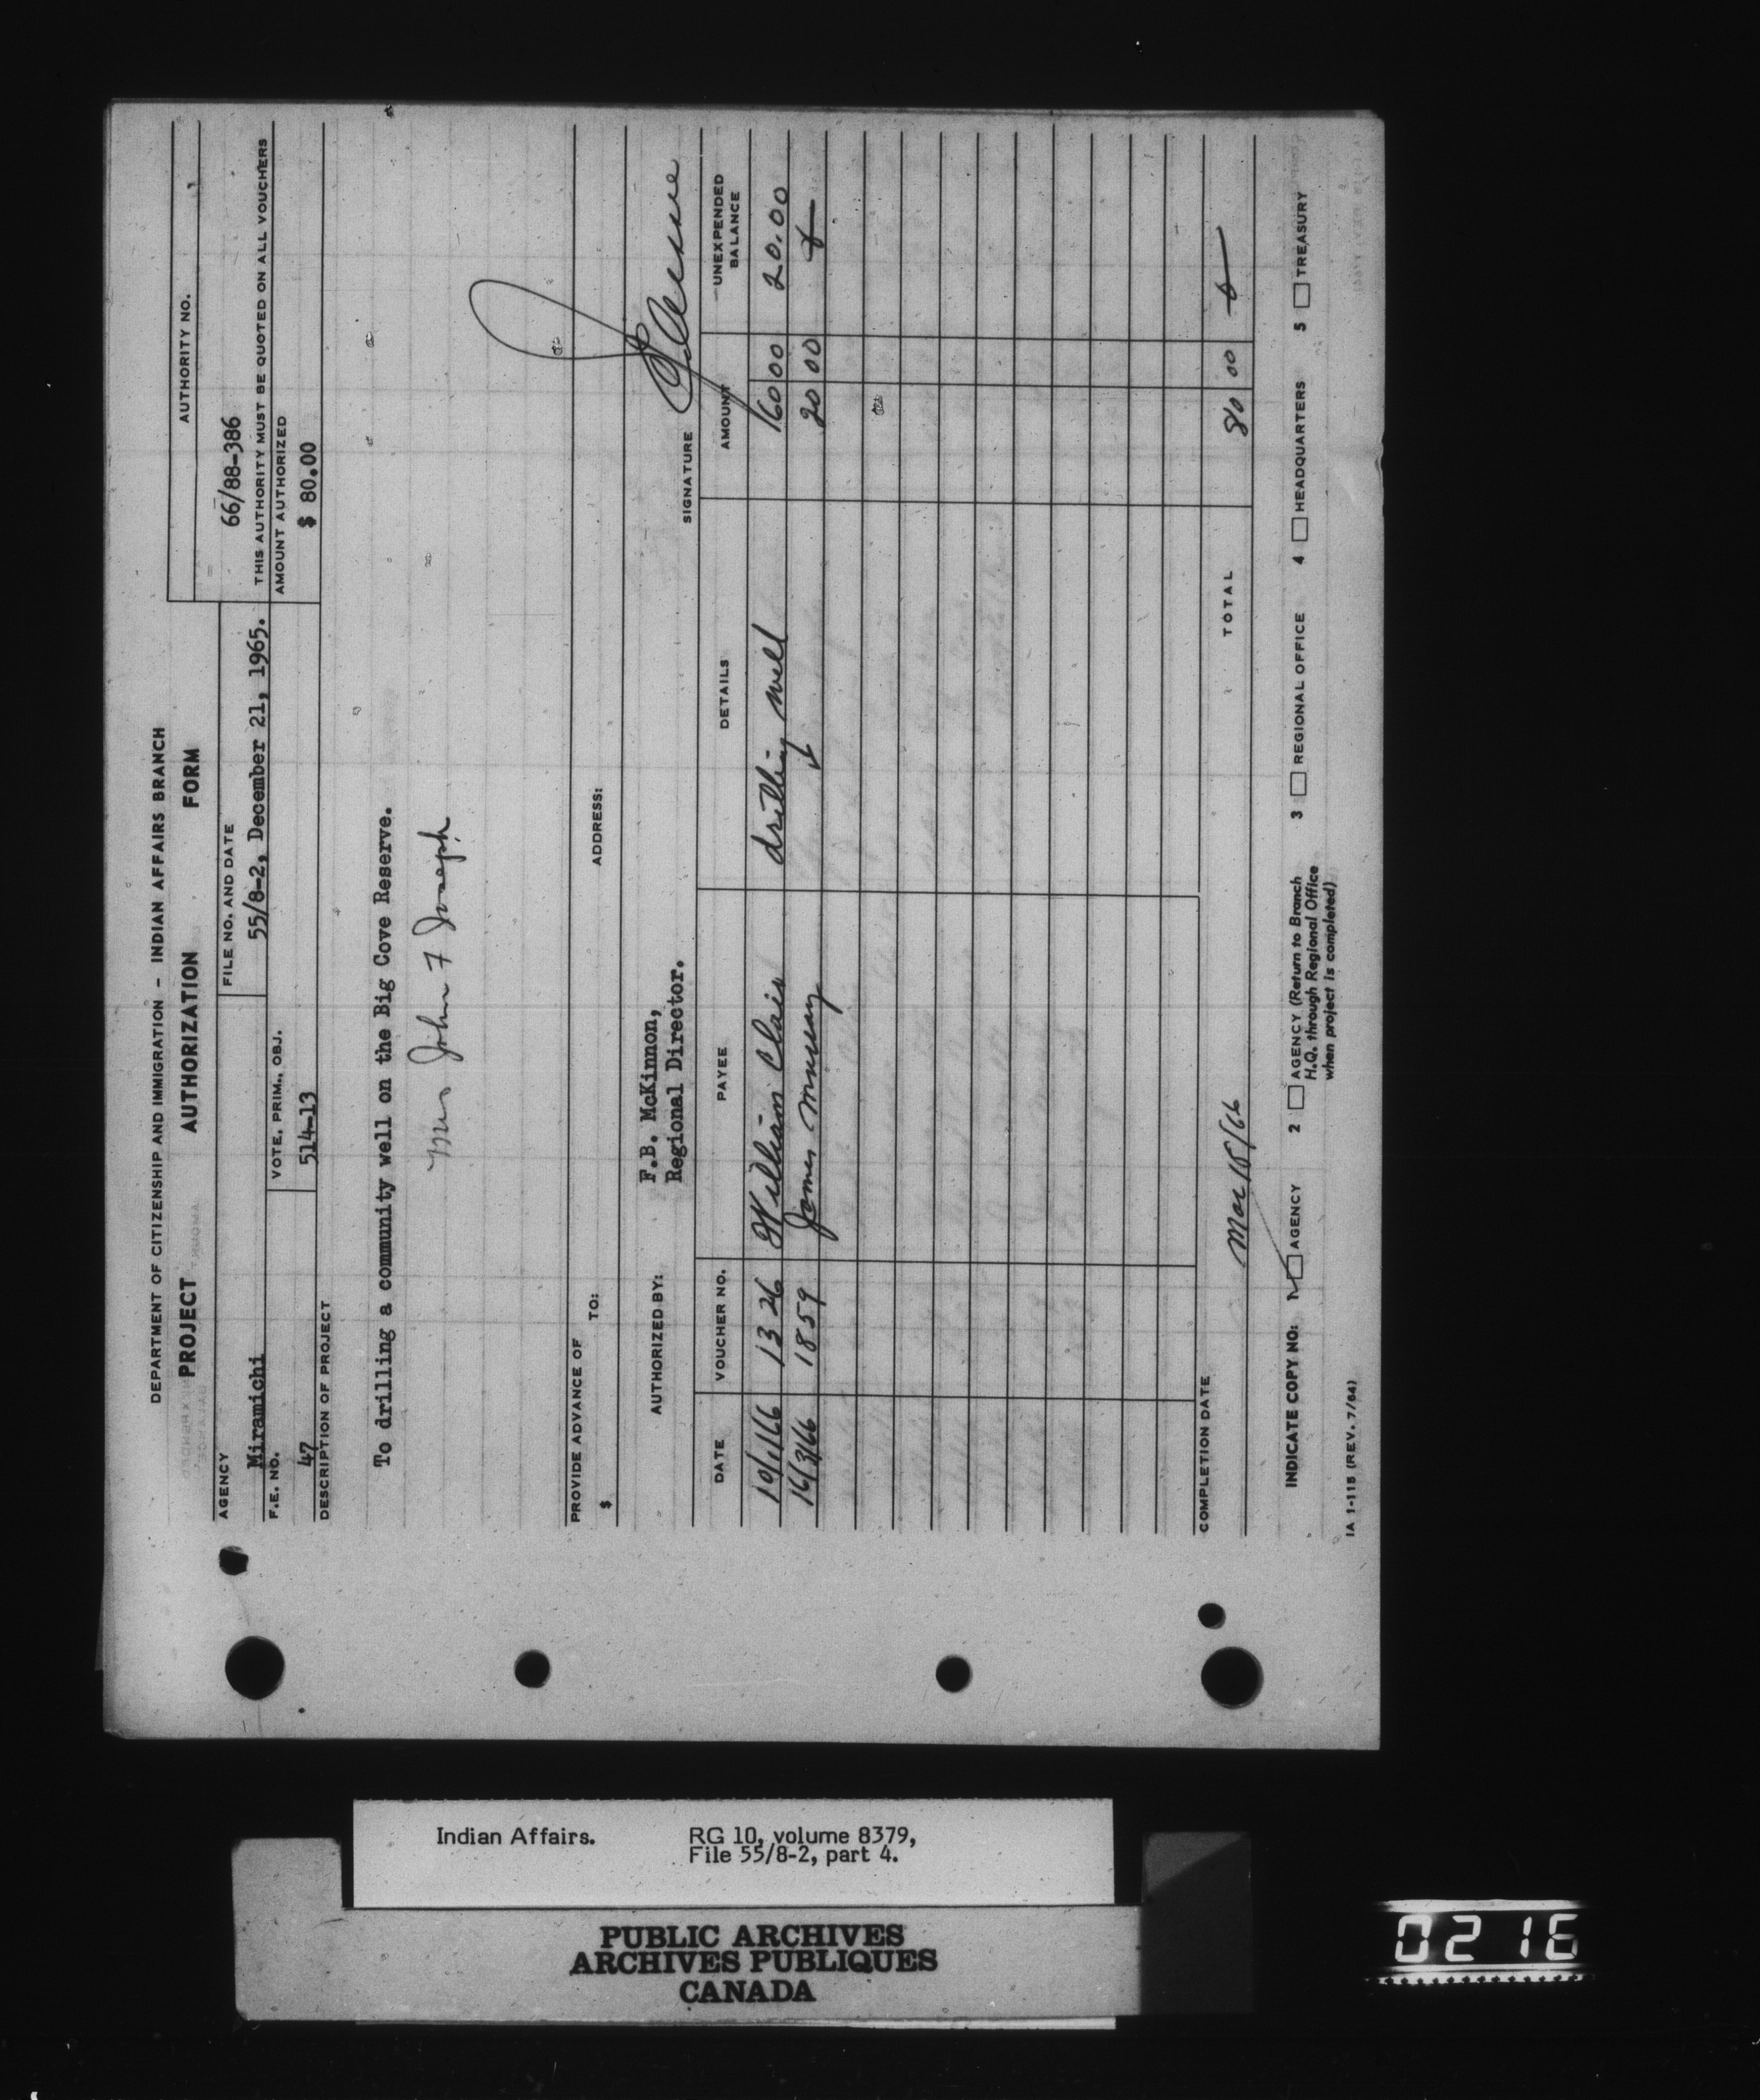 DEPARTMENT OF CITIZENSHIP AND IMMIGRATION - INDIAN AFFAIRS BRANCH
PROJECT AUTHORIZATION FORM
AUTHORITY NO.
66/88-386
THIS AUTHORITY MUST BE QUOTED ON ALL VOUCHERS
AGENCY
Miramichi
FILE NO. AND DATE
55/8-2, December 21, 1965.
F.E. NO.
47
VOTE, PRIM., OBJ.
514-13
AMOUNT AUTHORIZED
$ 80.00
DESCRIPTION OF PROJECT
To drilling a community well on the Big Cove Reserve.
Mrs John F Joseph
PROVIDE ADVANCE OF
$ TO: ADDRESS:
AUTHORIZED BY: F.B. McKinnon,
Regional Director.
SIGNATURE
DATE VOUCHER NO. PAYEE DETAILS AMOUNT UNEXPENDED BALANCE
10/1/66 1326 William Clair drilling well 60 00 20.00
16/3/66 1859 James Murray 20 00
COMPLETION DATE
Mar 15/66
TOTAL 80 00
INDICATE COPY NO: 1 AGENCY 2 AGENCY (Return to Branch H.Q. through Regional Office when project is completed) 3 REGIONAL OFFICE 4 HEADQUARTERS 5 TREASURY
IA 1-115 (REV. 7/64)
Indian Affairs. RG 10, volume 8379,
File 55/8-2, part 4.
PUBLIC ARCHIVES
ARCHIVES PUBLIQUES
CANADA
0216